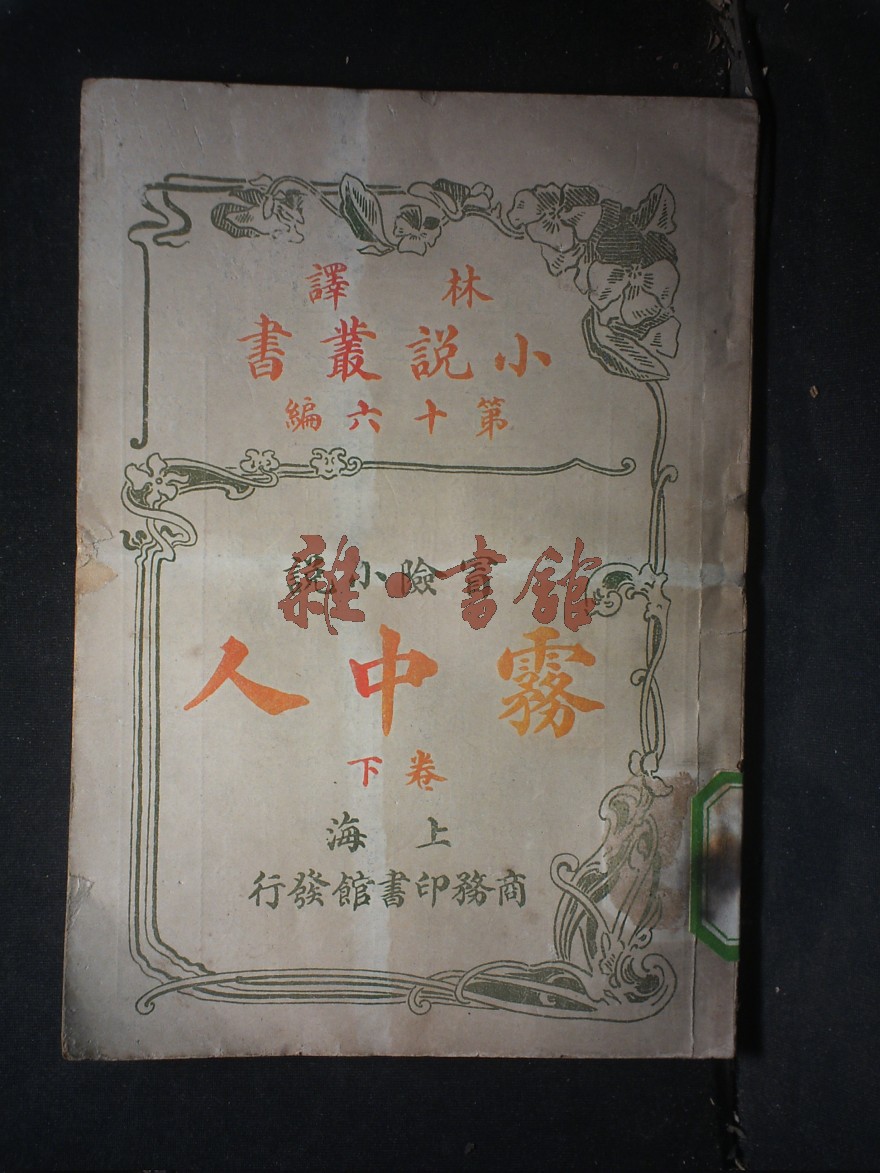 林譯
小說叢書
第十六編
冒險小說
雜·書館
霧中人
卷下
上海
商務印書館發行